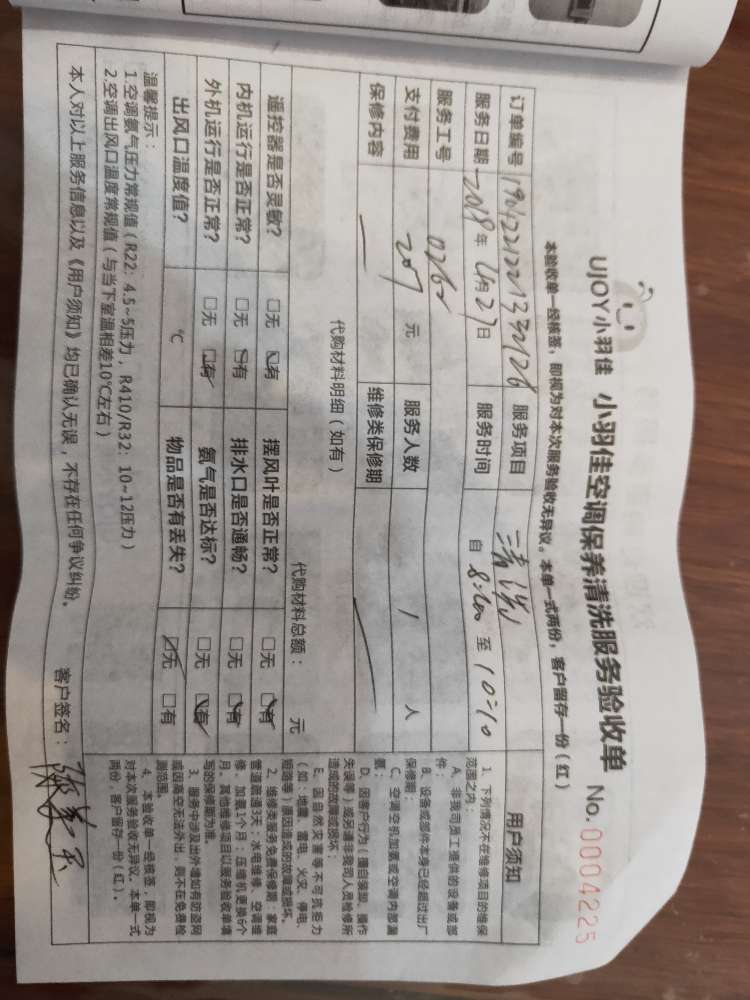 UJOY小羽佳 小羽佳空调保养清洗服务验收单 No.0004225
本验收单一经核签，即视为对本次服务验收无异议。本单一式两份，客户留存一份（红）
订单编号 服务项目 清洗
服务日期 2019年4月27日 服务时间 自 至 10:10
服务工号 0262
支付费用 207 元 服务人数 1 人
保修内容 维修类保修期
代购材料明细（如有） 代购材料总额： 元
遥控器是否灵敏？ □无 ☑有 摆风叶是否正常？ □无 ☑有
内机运行是否正常？ □无 ☑有 排水口是否通畅？ □无 ☑有
外机运行是否正常？ □无 ☑有 氨气是否达标？ □无 ☑有
出风口温度值？ ℃ 物品是否有丢失？ ☑无 □有
温馨提示：
1.空调氨气压力常规值（R22：4.5~5压力，R410/R32：10~12压力）
2.空调出风口温度常规值（与当下室温相差10℃左右）
本人对以上服务信息以及《用户须知》均已确认无误，不存在任何争议纠纷。 客户签名：
用户须知
1、下列情况不在维修项目的维保
范围之内：
A、非我司员工提供的设备或部
件；
B、设备或部件本身已经超过出厂
保修期；
C、空调空机加氨或空调内部漏
氨；
D、因客户行为（擅自装卸、操作
失误等）或邀请非我司人员检修所
造成的故障或损坏；
E、因自然灾害等不可抗拒力
（如：地震、雷电、火灾、停电、
短路等）原因造成的故障或损坏。
2、维修类服务免费保修期：家庭
管道疏通3天；水电维修、空调维
修、加氨1个月；压缩机更换6个
月。其他维修项目以服务验收单填
写的保修期为准。
3、服务中涉及出外墙如有防盗网
或因高空无法外出，则不在免费检
测范围。
4、本验收单一经核签，即视为
对本次服务验收无异议。本单一式
两份，客户留存一份（红）。